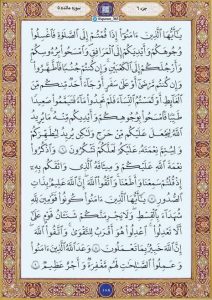 جزء ٦
سورة مائده ٥
يَـٰٓأَيُّهَا ٱلَّذِينَ ءَامَنُوٓا۟ إِذَا قُمْتُمْ إِلَى ٱلصَّلَوٰةِ فَٱغْسِلُوا۟
وُجُوهَكُمْ وَأَيْدِيَكُمْ إِلَى ٱلْمَرَافِقِ وَٱمْسَحُوا۟ بِرُءُوسِكُمْ
وَأَرْجُلَكُمْ إِلَى ٱلْكَعْبَيْنِ وَإِن كُنتُمْ جُنُبًا فَٱطَّهَّرُوا۟
وَإِن كُنتُم مَّرْضَىٰٓ أَوْ عَلَىٰ سَفَرٍ أَوْ جَآءَ أَحَدٌ مِّنكُم مِّنَ
ٱلْغَآئِطِ أَوْ لَـٰمَسْتُمُ ٱلنِّسَآءَ فَلَمْ تَجِدُوا۟ مَآءً فَتَيَمَّمُوا۟ صَعِيدًا
طَيِّبًا فَٱمْسَحُوا۟ بِوُجُوهِكُمْ وَأَيْدِيكُم مِّنْهُ مَا يُرِيدُ
ٱللَّهُ لِيَجْعَلَ عَلَيْكُم مِّنْ حَرَجٍ وَلَـٰكِن يُرِيدُ لِيُطَهِّرَكُمْ
وَلِيُتِمَّ نِعْمَتَهُۥ عَلَيْكُمْ لَعَلَّكُمْ تَشْكُرُونَ ٦ وَٱذْكُرُوا۟
نِعْمَةَ ٱللَّهِ عَلَيْكُمْ وَمِيثَـٰقَهُ ٱلَّذِى وَاثَقَكُم بِهِۦٓ
إِذْ قُلْتُمْ سَمِعْنَا وَأَطَعْنَا وَٱتَّقُوا۟ ٱللَّهَ إِنَّ ٱللَّهَ عَلِيمٌۢ بِذَاتِ
ٱلصُّدُورِ ٧ يَـٰٓأَيُّهَا ٱلَّذِينَ ءَامَنُوا۟ كُونُوا۟ قَوَّٰمِينَ لِلَّهِ
شُهَدَآءَ بِٱلْقِسْطِ وَلَا يَجْرِمَنَّكُمْ شَنَـَٔانُ قَوْمٍ عَلَىٰٓ
أَلَّا تَعْدِلُوا۟ ٱعْدِلُوا۟ هُوَ أَقْرَبُ لِلتَّقْوَىٰ وَٱتَّقُوا۟ ٱللَّهَ إِنَّ
ٱللَّهَ خَبِيرٌۢ بِمَا تَعْمَلُونَ ٨ وَعَدَ ٱللَّهُ ٱلَّذِينَ ءَامَنُوا۟
وَعَمِلُوا۟ ٱلصَّـٰلِحَـٰتِ لَهُم مَّغْفِرَةٌ وَأَجْرٌ عَظِيمٌ ٩
١٠٨